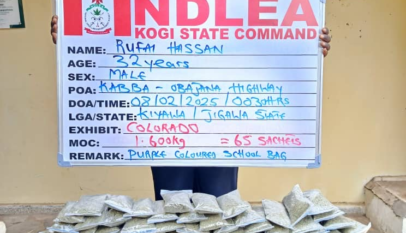 NDLEA
KOGI STATE COMMAND
NAME: RUFAI HASSAN
AGE: 32 years
SEX: MALE
POA: KABBA - OBAJANA HIGHWAY
DOA/TIME: 08/02/2025 / 0030HRS
LGA/STATE: KIYAWA / JIGAWA STATE
EXHIBIT: COLORADO
MOC: 1.600kg = 65 SACHETS
REMARK: PURPLE COLOURED SCHOOL BAG